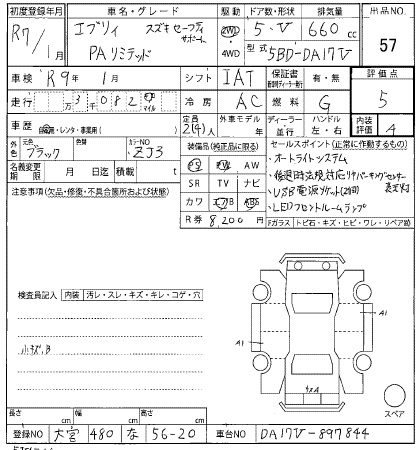 初度登録年月 車名・グレード 駆動 ドア数・形状 排気量 出品NO
R7/1月 エブリィ スズキセーフティサポート 2WD 5・V 660cc 57
PAリミテッド 4WD 型式 5BD-DA17V
車検 R9年 1月 シフト IAT 保証書 有・無 評価点
走行 万3千082 マイル 冷房 AC 燃料 G 5
車歴 自家用・レンタ・事業用( ) 定員 2(4)人 外車モデル 年 ディーラー 並行 ハンドル 左・右 内装評価 A
外色 元色 ブラック 色替 カラーNO ZJ3 装備品(純正品に限る) セールスポイント(正常に作動するもの)
名義変更期限 月 日迄 積載量 t PS PW AW ・オートライトシステム
注意事項(欠品・修復・不具合箇所および状態) SR TV ナビ ・後退時法規対応リヤパーキングセンサー
カワ エアB ABS ・USB電源ソケット(2個)
R券 8,200円 ・LEDフロントルームランプ
Fガラス トビ石・キズ・ヒビ・ワレ・リペア跡
検査員記入 内装 汚レ・スレ・キズ・キレ・コゲ・穴
A1
小キズ,B A1
スペア
長さ cm 幅 cm 高さ cm
登録NO 大宮 480 な 56-20 車台NO DA17V-897844